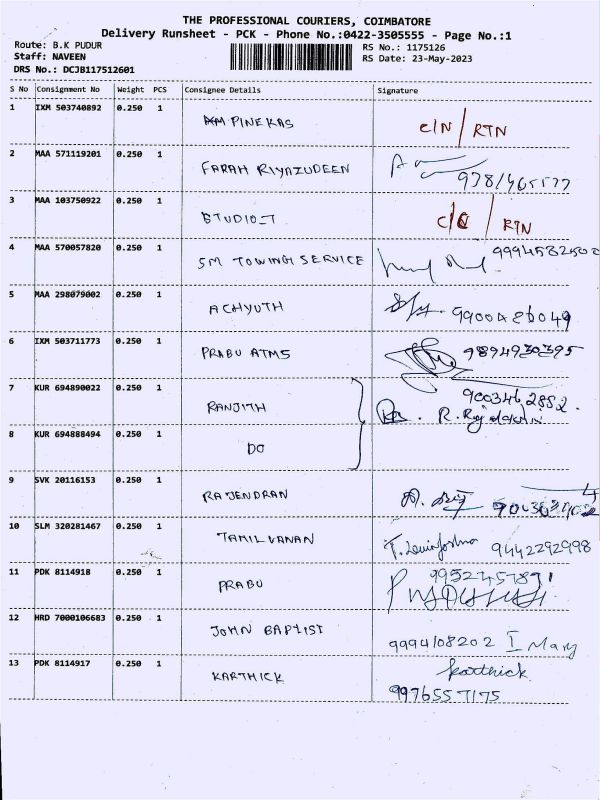 THE PROFESSIONAL COURIERS, COIMBATORE
Delivery Runsheet - PCK - Phone No.:0422-3505555 - Page No.:1
Route: B.K PUDUR
Staff: NAVEEN
DRS No.: DCJB117512601
RS No.: 1175126
RS Date: 23-May-2023
S No Consignment No Weight PCS Consignee Details Signature
1 IXM 503740892 0.250 1 PINEKAS C/N / RTN
2 MAA 571119201 0.250 1 FARAH RIYAZUDEEN
3 MAA 103750922 0.250 1 STUDIO-T / RTN
4 MAA 570057820 0.250 1 SM TOWING SERVICE 9994582502
5 MAA 298079002 0.250 1 ACHYUTH
6 IXM 503711773 0.250 1 PRABU ATMS 9894930395
7 KUR 694890022 0.250 1 RANJITH 9003462882.
8 KUR 694888494 0.250 1 DO
9 SVK 20116153 0.250 1 RAJENDRAN
10 SLM 320281467 0.250 1 TAMILVANAN 9442292998
11 PDK 8114918 0.250 1 PRABU
12 HRD 7000106683 0.250 1 JOHN BAPTIST 9994108202 I Mary
13 PDK 8114917 0.250 1 KARTHICK Karthick
9976557175